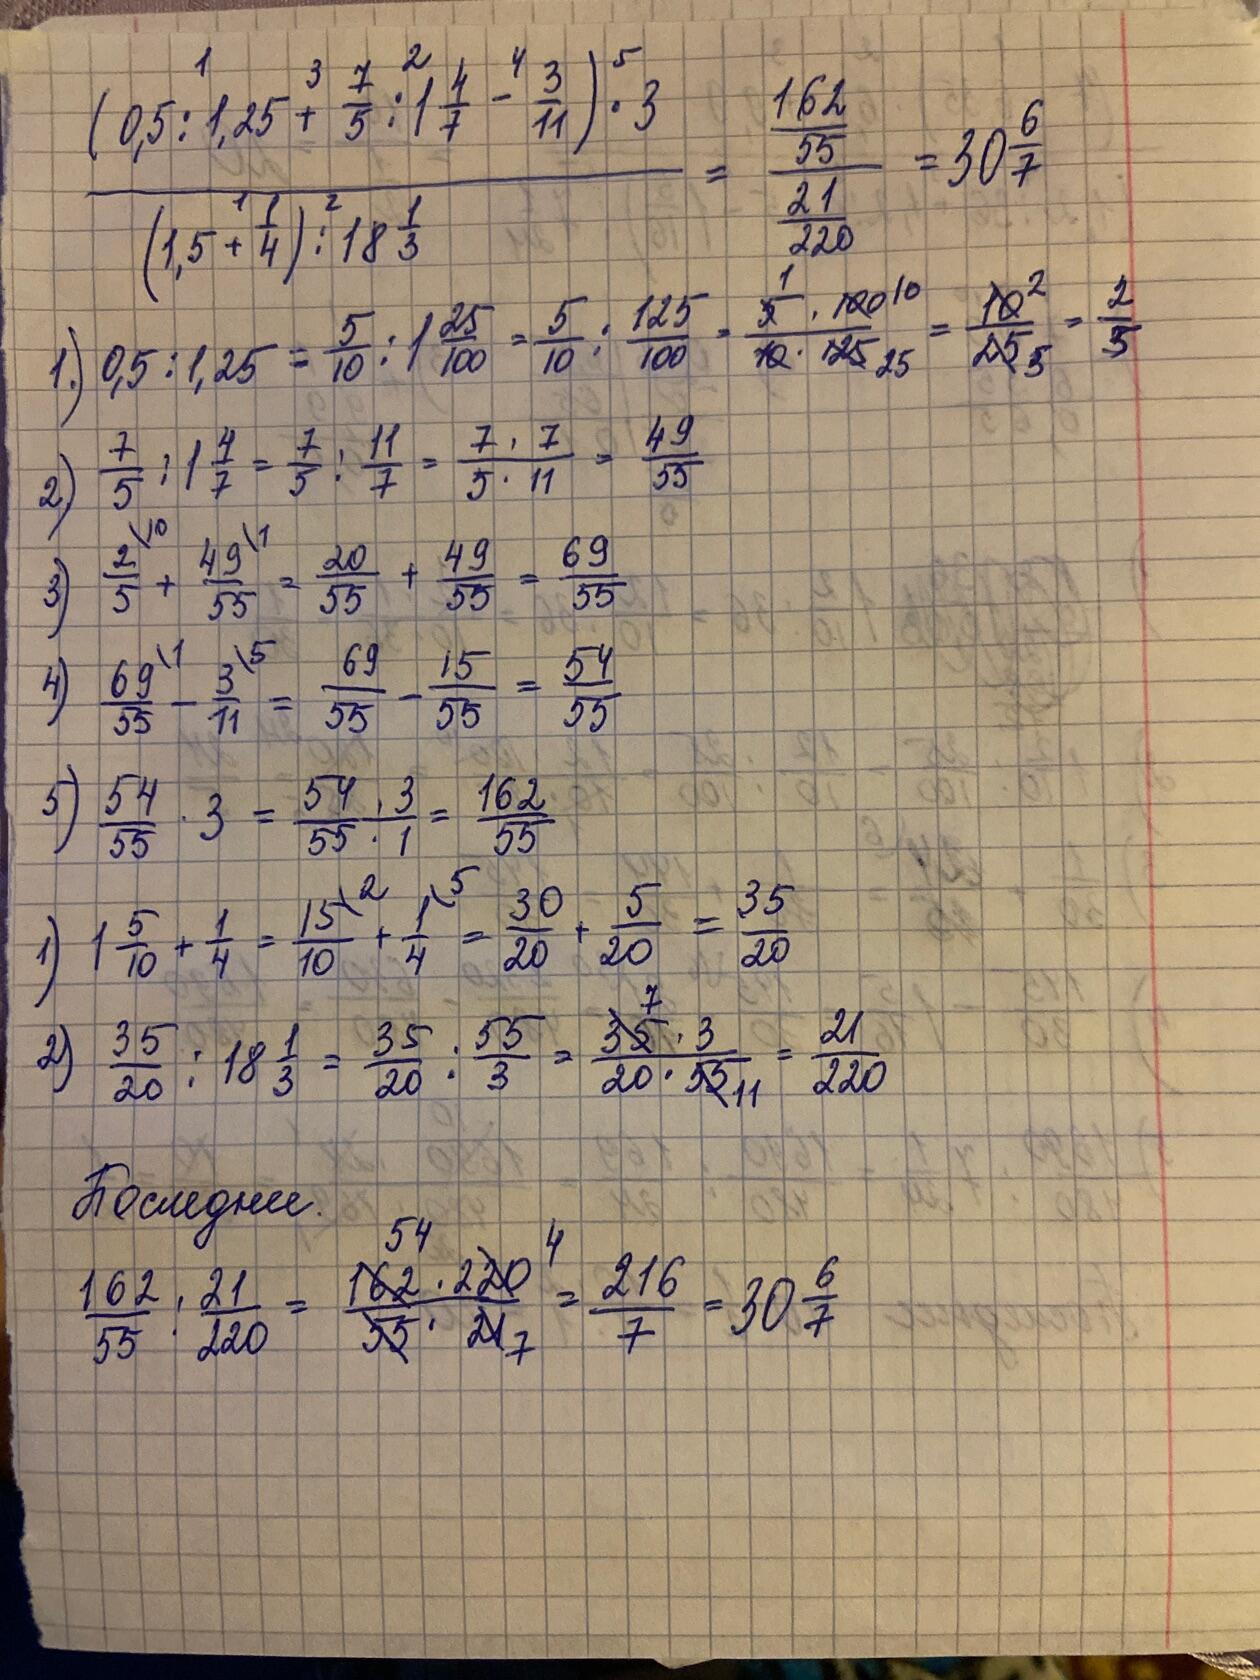 (0,5 : 1,25 + 7/5 : 1 4/7 - 3/11) · 3 / (1,5 + 1/4) : 18 1/3 = 162/55 / 21/220 = 30 6/7
1.) 0,5 : 1,25 = 5/10 : 1 25/100 = 5/10 : 125/100 = 5 · 100 / 10 · 125 = 10/25 = 2/5
2) 7/5 : 1 4/7 = 7/5 : 11/7 = 7 · 7 / 5 · 11 = 49/55
3) 2/5 \10 + 49/55 \1 = 20/55 + 49/55 = 69/55
4) 69/55 \1 - 3/11 \5 = 69/55 - 15/55 = 54/55
5) 54/55 · 3 = 54 · 3 / 55 · 1 = 162/55
1) 1 5/10 + 1/4 = 15/10 \2 + 1/4 \5 = 30/20 + 5/20 = 35/20
2) 35/20 : 18 1/3 = 35/20 : 55/3 = 35 · 3 / 20 · 55 = 21/220
Последнее.
162/55 : 21/220 = 162 · 220 / 55 · 21 = 216/7 = 30 6/7